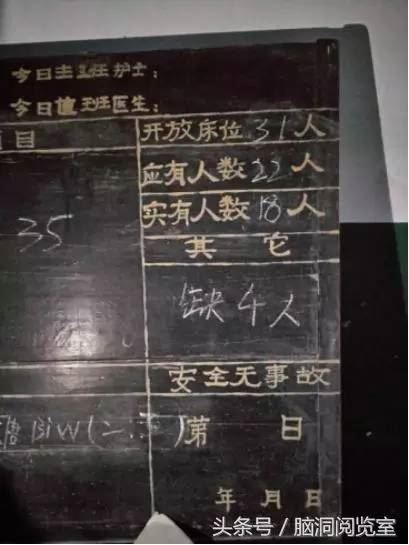 今日主班护士:
今日值班医生:
目 开放床位31人
应有人数22人
实有人数18人
其它
35
缺4人
安全无事故
BiW(二.三)第 日
年月日
头条号/脑洞阅览室